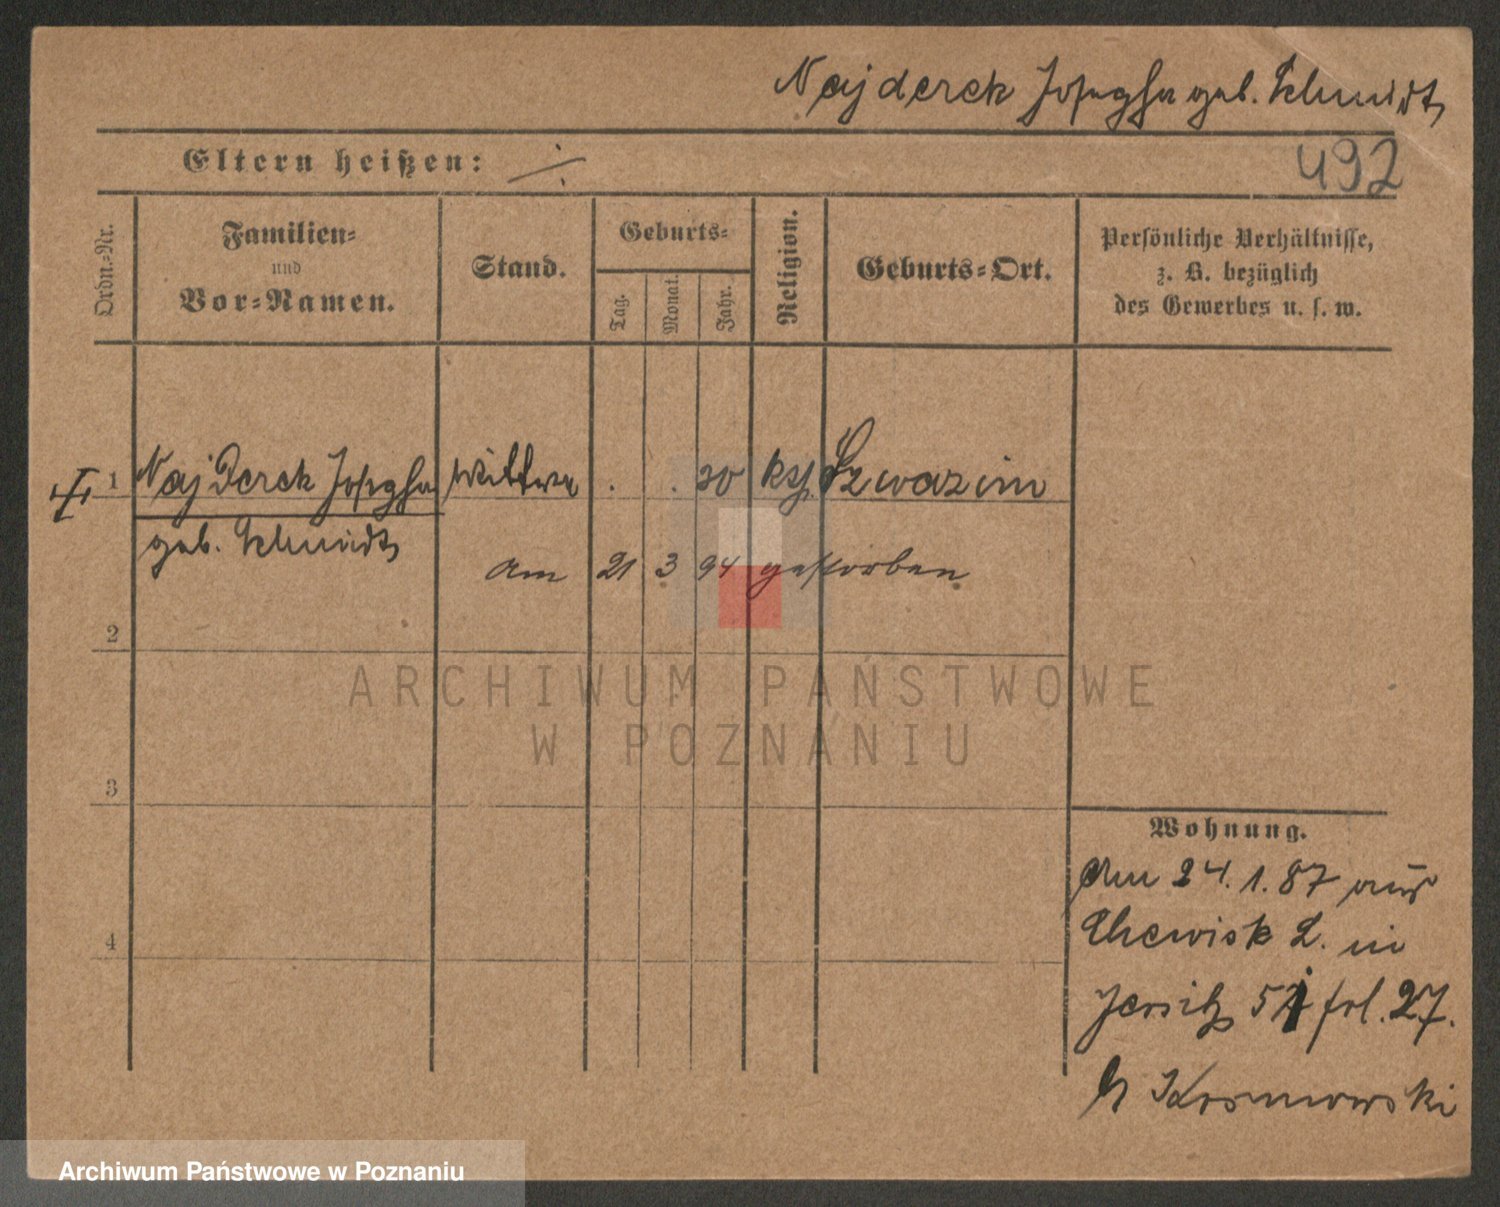 Najderek Josepha geb. Schmidt
492
Eltern heißen: ./.
Ordn.-Nr.
Familien-
und
Vor-Namen.
Stand.
Geburts-
Tag.
Monat.
Jahr.
Religion.
Geburts-Ort.
Persönliche Verhältnisse,
z. B. bezüglich
des Gewerbes u. s. w.
1 Najderek Josepha Wittwe . . 20 kth. Szwazim
geb. Schmidt
am 21 3 94 gestorben
2
3
4
Wohnung.
Am 24.1.87 aus
Chewisk L. in
Jersitz 51 frl. 27.
b/ Kosmowski
ARCHIWUM PAŃSTWOWE
W POZNANIU
Archiwum Państwowe w Poznaniu